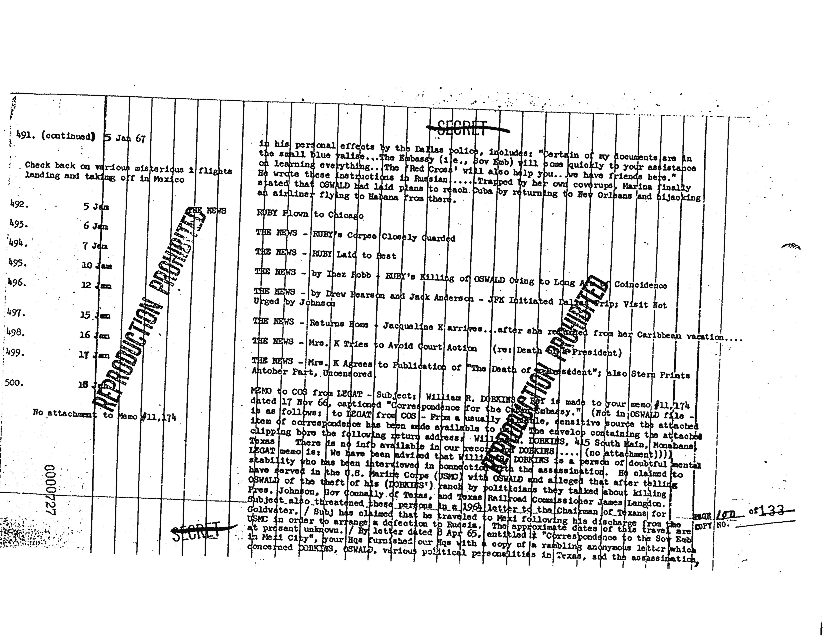 SECRET
491. (continued) 5 Jan 67
in his personal effects by the Dallas police, includes: "Certain of my documents are in
the small blue valise...The Embassy (i.e., Sov Emb) will come quickly to your assistance
on learning everything...The 'Red Cross' will also help you...we have friends here."
He wrote these instructions in Russian.....Trapped by her own coverups, Marina finally
stated that OSWALD had laid plans to reach Cuba by returning to New Orleans and hijacking
an airliner flying to Habana from there.
Check back on various misterious 2 flights
landing and taking off in Mexico
492. 5 Jan THE NEWS RUBY Flown to Chicago
493. 6 Jan THE NEWS - RUBY's Corpse Closely Guarded
494. 7 Jan THE NEWS - RUBY Laid to Rest
495. 10 Jan THE NEWS - by Inez Robb - RUBY's Killing of OSWALD Owing to Long Coincidence
496. 12 Jan THE NEWS - by Drew Pearson and Jack Anderson - JFK Initiated Dallas Trip; Visit Not
Urged by Johnson
497. 15 Jan THE NEWS - Returns Home - Jacqueline K arrives...after she returned from her Caribbean vacation....
498. 16 Jan THE NEWS - Mrs. K Tries to Avoid Court Action (re: Death of a President)
499. 17 Jan THE NEWS - Mrs. K Agrees to Publication of "The Death of a President"; also Stern Prints
Antoher Part, Uncensored
500. 18 MEMO to COS from LEGAT - Subject: William R. DOBKINS Ref is made to your memo #11,174
dated 17 Nov 66, captioned "Correspondence for the Embassy." (Not in OSWALD file -
is as follows: to LEGAT from COS - From a usually sensitive source the attached
item of correspondence has been made available to The envelop containing the attached
clipping bore the following return address: DOBKINS, 415 South Main, Monahans,
Texas There is no info available in our DOBKINS .... (no attachment)))
No attachment to Memo #11,174
LEGAT memo is: We have been advised that DOBKINS is a person of doubtful mental
stability who has been interviewed in connection with the assassination. He claimed to
have served in the U.S. Marine Corps (USMC) with OSWALD and alleged that after telling
OSWALD of the theft of his (DOBKINS') ranch by politicians they talked about killing
Pres. Johnson, Gov Connally of Texas, and Texas Railroad Commissioner James Langdon.
Subject also threatened these persons in a 1964 letter to the Chairman of Texans for
Goldwater. / Subj has claimed that he traveled to Mexi following his discharge from the
USMC in order to arrange a defection to Russia. The approximate dates of this travel are
at present unknown. / By letter dated 8 Apr 65, entitled "Correspondence to the Sov Emb
in Mexi City", your Hqs furnished our Hqs with a copy of a rambling anonymous letter which
concerned DOBKINS, OSWALD, various political personalities in Texas, and the assassination,
REPRODUCTION PROHIBITED
REPRODUCTION PROHIBITED
0000727
SECRET
PAGE 100 of 133
COPY NO.